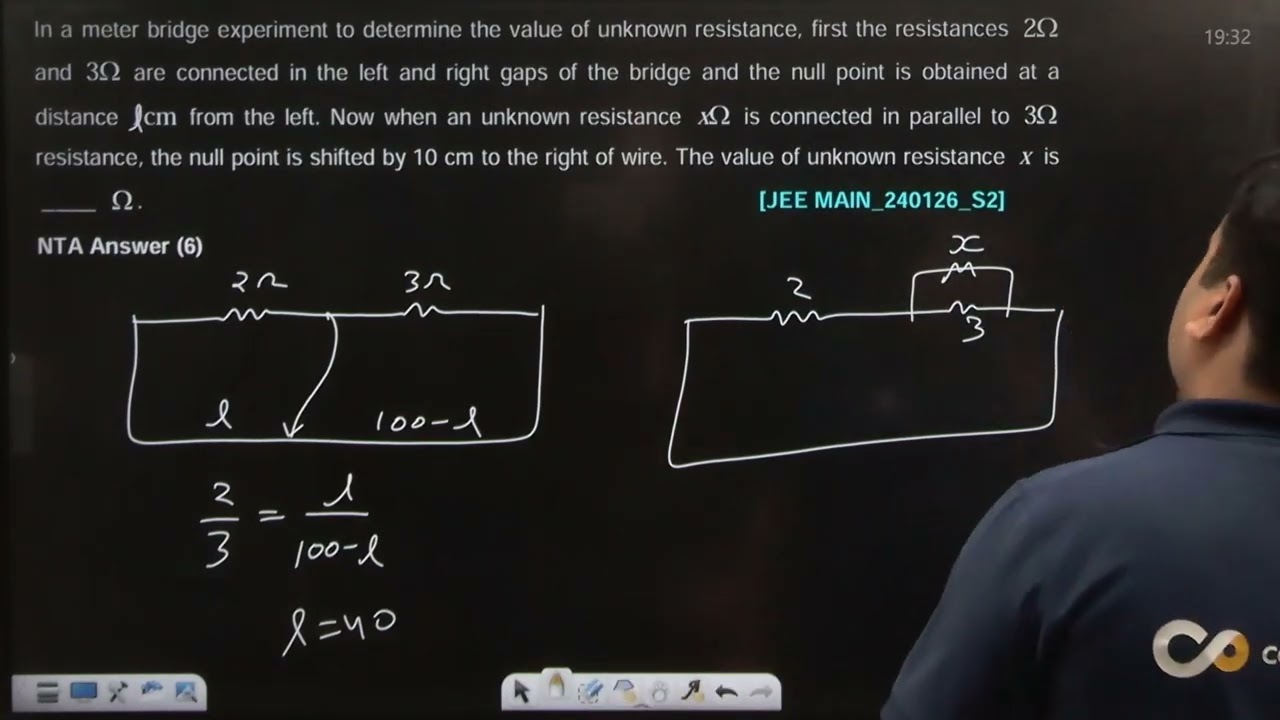 In a meter bridge experiment to determine the value of unknown resistance, first the resistances 2Ω
and 3Ω are connected in the left and right gaps of the bridge and the null point is obtained at a
distance lcm from the left. Now when an unknown resistance xΩ is connected in parallel to 3Ω
resistance, the null point is shifted by 10 cm to the right of wire. The value of unknown resistance x is
____ Ω.
[JEE MAIN_240126_S2]
NTA Answer (6)
19:32
2Ω 3Ω
l 100-l
2/3 = l/(100-l)
l=40
x
2
3